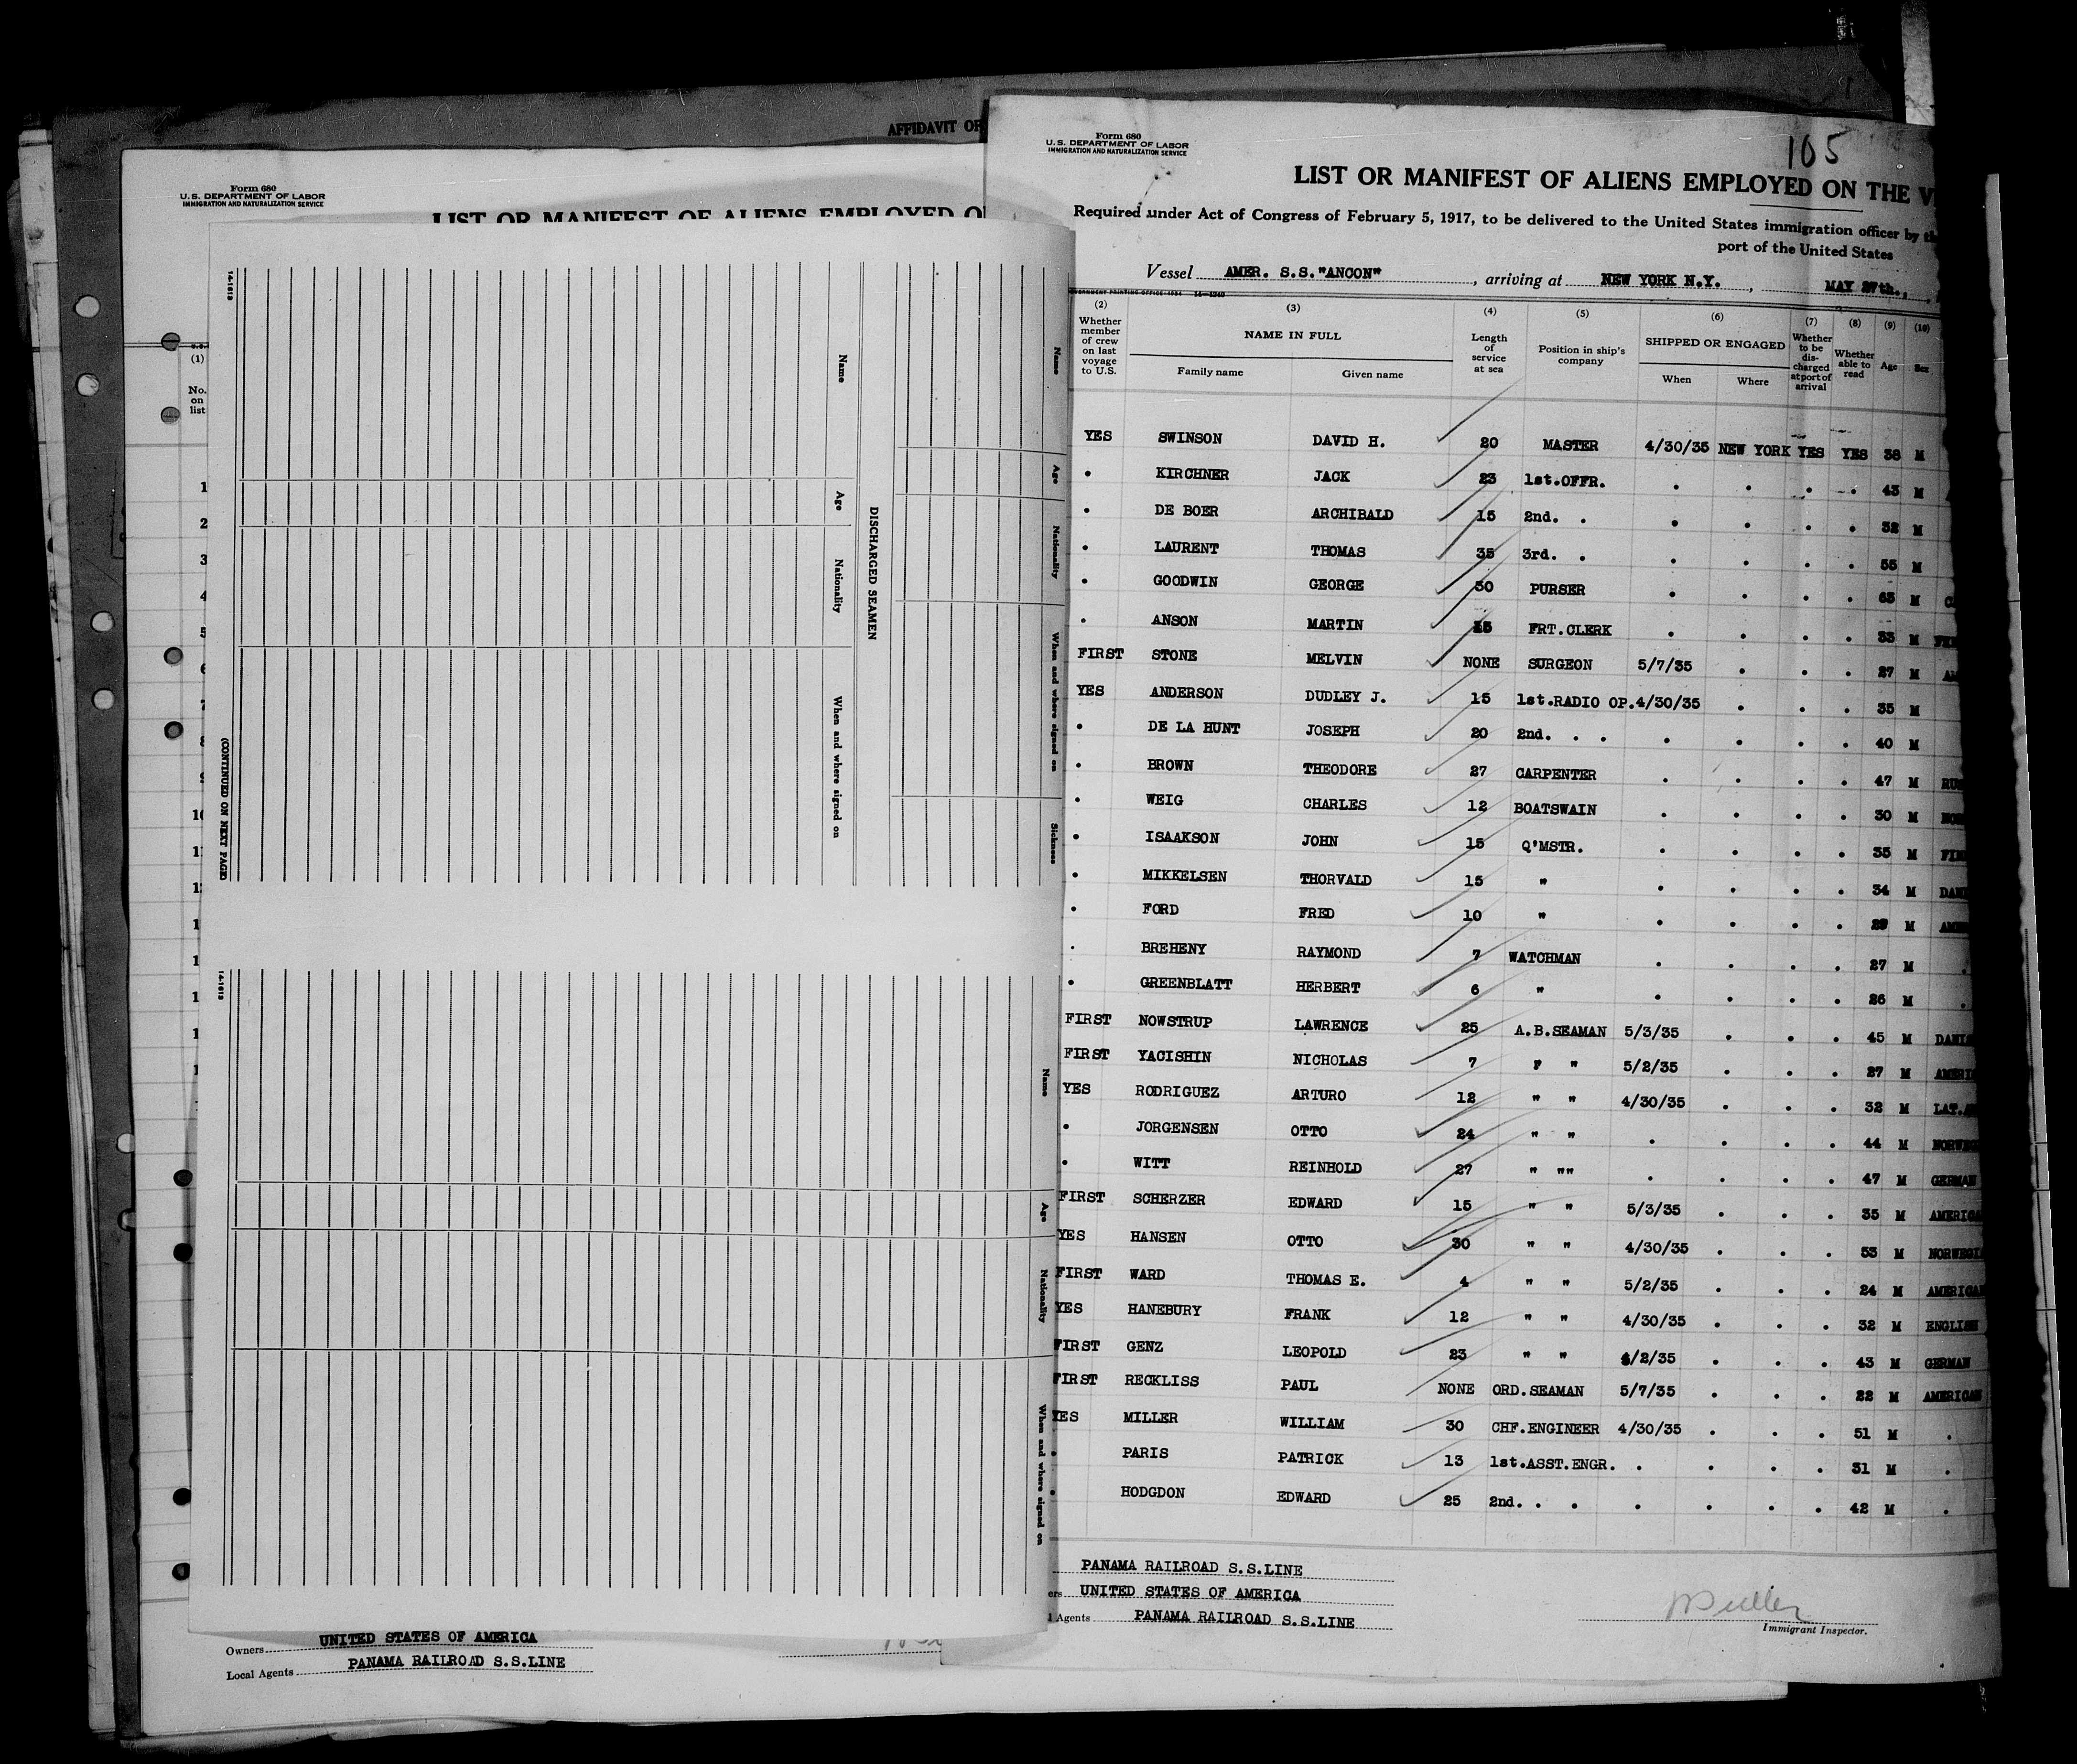 AFFIDAVIT OF
Form 680
U.S. DEPARTMENT OF LABOR
IMMIGRATION AND NATURALIZATION SERVICE
LIST OR MANIFEST OF ALIENS EMPLOYED O
(1)
No. on list
1
2
3
4
5
6
7
8
9
10
11
14-1613
Name
Age
Nationality
When and where signed on
Sickness
DISCHARGED SEAMEN
Name
Age
Nationality
When and where signed on
(CONTINUED ON NEXT PAGE)
14-1613
Name
Age
Nationality
When and where signed on
Owners UNITED STATES OF AMERICA
Local Agents PANAMA RAILROAD S.S.LINE
105
Form 680
U.S. DEPARTMENT OF LABOR
IMMIGRATION AND NATURALIZATION SERVICE
LIST OR MANIFEST OF ALIENS EMPLOYED ON THE V
Required under Act of Congress of February 5, 1917, to be delivered to the United States immigration officer by th
port of the United States
Vessel AMER. S.S."ANCON", arriving at NEW YORK N.Y., MAY 27th.,
(2) (3) (4) (5) (6) (7) (8) (9) (10)
Whether member of crew on last voyage to U.S.
NAME IN FULL
Family name Given name
Length of service at sea
Position in ship's company
SHIPPED OR ENGAGED
When Where
Whether to be discharged at port of arrival
Whether able to read
Age
Sex
YES SWINSON DAVID H. 20 MASTER 4/30/35 NEW YORK YES YES 38 M
" KIRCHNER JACK 23 1st.OFFR. " " " " 43 M
" DE BOER ARCHIBALD 15 2nd. " " " " " 32 M
" LAURENT THOMAS 35 3rd. " " " " " 55 M
" GOODWIN GEORGE 30 PURSER " " " " 63 M
" ANSON MARTIN 15 FRT.CLERK " " " " 33 M
FIRST STONE MELVIN NONE SURGEON 5/7/35 " " " 27 M
YES ANDERSON DUDLEY J. 15 1st.RADIO OP. 4/30/35 " " " 35 M
" DE LA HUNT JOSEPH 20 2nd. " " " " " " 40 M
" BROWN THEODORE 27 CARPENTER " " " " 47 M RUS
" WEIG CHARLES 12 BOATSWAIN " " " " 30 M
" ISAAKSON JOHN 15 Q'MSTR. " " " " 35 M FIN
" MIKKELSEN THORVALD 15 " " " " " 34 M DAN
" FORD FRED 10 " " " " " 29 M AME
" BREHENY RAYMOND 7 WATCHMAN " " " " 27 M "
" GREENBLATT HERBERT 6 " " " " " 26 M "
FIRST NOWSTRUP LAWRENCE 25 A.B.SEAMAN 5/3/35 " " " 45 M DANIS
FIRST YACISHIN NICHOLAS 7 " " 5/2/35 " " " 27 M AMERI
YES RODRIGUEZ ARTURO 12 " " 4/30/35 " " " 32 M LAT.A
" JORGENSEN OTTO 24 " " " " " " 44 M NORWEG
" WITT REINHOLD 27 " "" " " " " 47 M GERMAN
FIRST SCHERZER EDWARD 15 " " 5/3/35 " " " 35 M AMERICA
YES HANSEN OTTO 30 " " 4/30/35 " " " 53 M NORWEGI
FIRST WARD THOMAS E. 4 " " 5/2/35 " " " 24 M AMERICAN
YES HANEBURY FRANK 12 " " 4/30/35 " " " 32 M ENGLISH
FIRST GENZ LEOPOLD 23 " " /2/35 " " " 43 M GERMAN
FIRST RECKLISS PAUL NONE ORD.SEAMAN 5/7/35 " " " 22 M AMERICAN
YES MILLER WILLIAM 30 CHF.ENGINEER 4/30/35 " " " 51 M "
" PARIS PATRICK 13 1st.ASST.ENGR. " " " " 31 M "
" HODGDON EDWARD 25 2nd. " " " " " " 42 M "
PANAMA RAILROAD S.S.LINE
ers UNITED STATES OF AMERICA
l Agents PANAMA RAILROAD S.S.LINE
Immigrant Inspector.